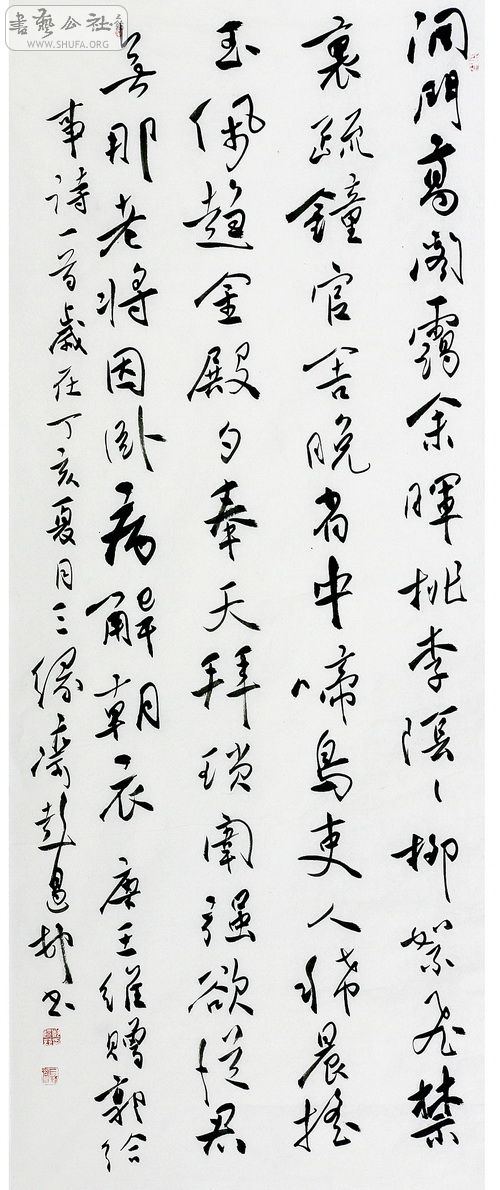 書藝公社
WWW.SHUFA.ORG
洞門高阁靄余暉桃李陰々柳絮飛禁
裏疏鐘官舍晚省中啼鳥吏人稀晨摇
玉佩趨金殿夕奉天拜琐闈强欲從君
無那老将因卧病解朝衣 唐王維贈郭給
事詩一首歲在丁亥夏月三緣齋彭邨書